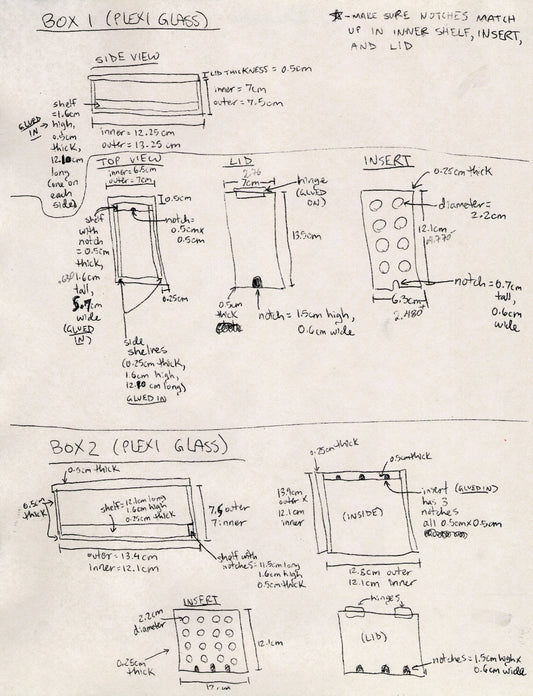 BOX 1 (PLEXI GLASS)
★-MAKE SURE NOTCHES MATCH
UP IN INNER SHELF, INSERT,
AND LID
SIDE VIEW
LID THICKNESS = 0.5cm
inner = 7cm
outer = 7.5cm
shelf
=1.6cm
high,
0.5cm
thick,
12.10cm
long
(one on
each
side)
GLUED
IN
inner = 12.25cm
outer = 13.25cm
TOP VIEW
inner = 6.5cm
outer = 7cm
0.5cm
shelf
with
notch
= 0.5cm
thick,
.630 1.6cm
tall,
5.7cm
wide
(GLUED
IN)
notch=
0.5cmx
0.5cm
0.25cm
side
shelves
(0.25cm thick,
1.6cm high,
12.10 cm long)
GLUED IN
LID
2.76
7cm
hinge
(GLUED
ON)
13.5cm
0.5cm
thick
notch = 1.5cm high,
0.6cm wide
INSERT
0.25cm thick
diameter=
2.2cm
12.1cm
notch = 0.7cm
tall,
0.6cm
wide
6.3cm
2.480
BOX 2 (PLEXI GLASS)
0.5cm thick
0.5cm
thick
shelf=12.1cm long
1.6cm high
0.25cm thick
7.5 outer
7 inner
outer = 13.4cm
inner = 12.1cm
shelf with
notches = 11.5cm long
1.6cm high
0.5cm thick
0.25cm thick
0.5cm thick
13.9cm
outer x
12.1cm
inner
(INSIDE)
insert (GLUED IN)
has 3
notches
all 0.5cmx0.5cm
12.8cm outer
12.1cm inner
INSERT
2.2cm
diameter
12.1cm
0.25cm
thick
hinges
(LID)
notches = 1.5cm high x
0.6cm wide